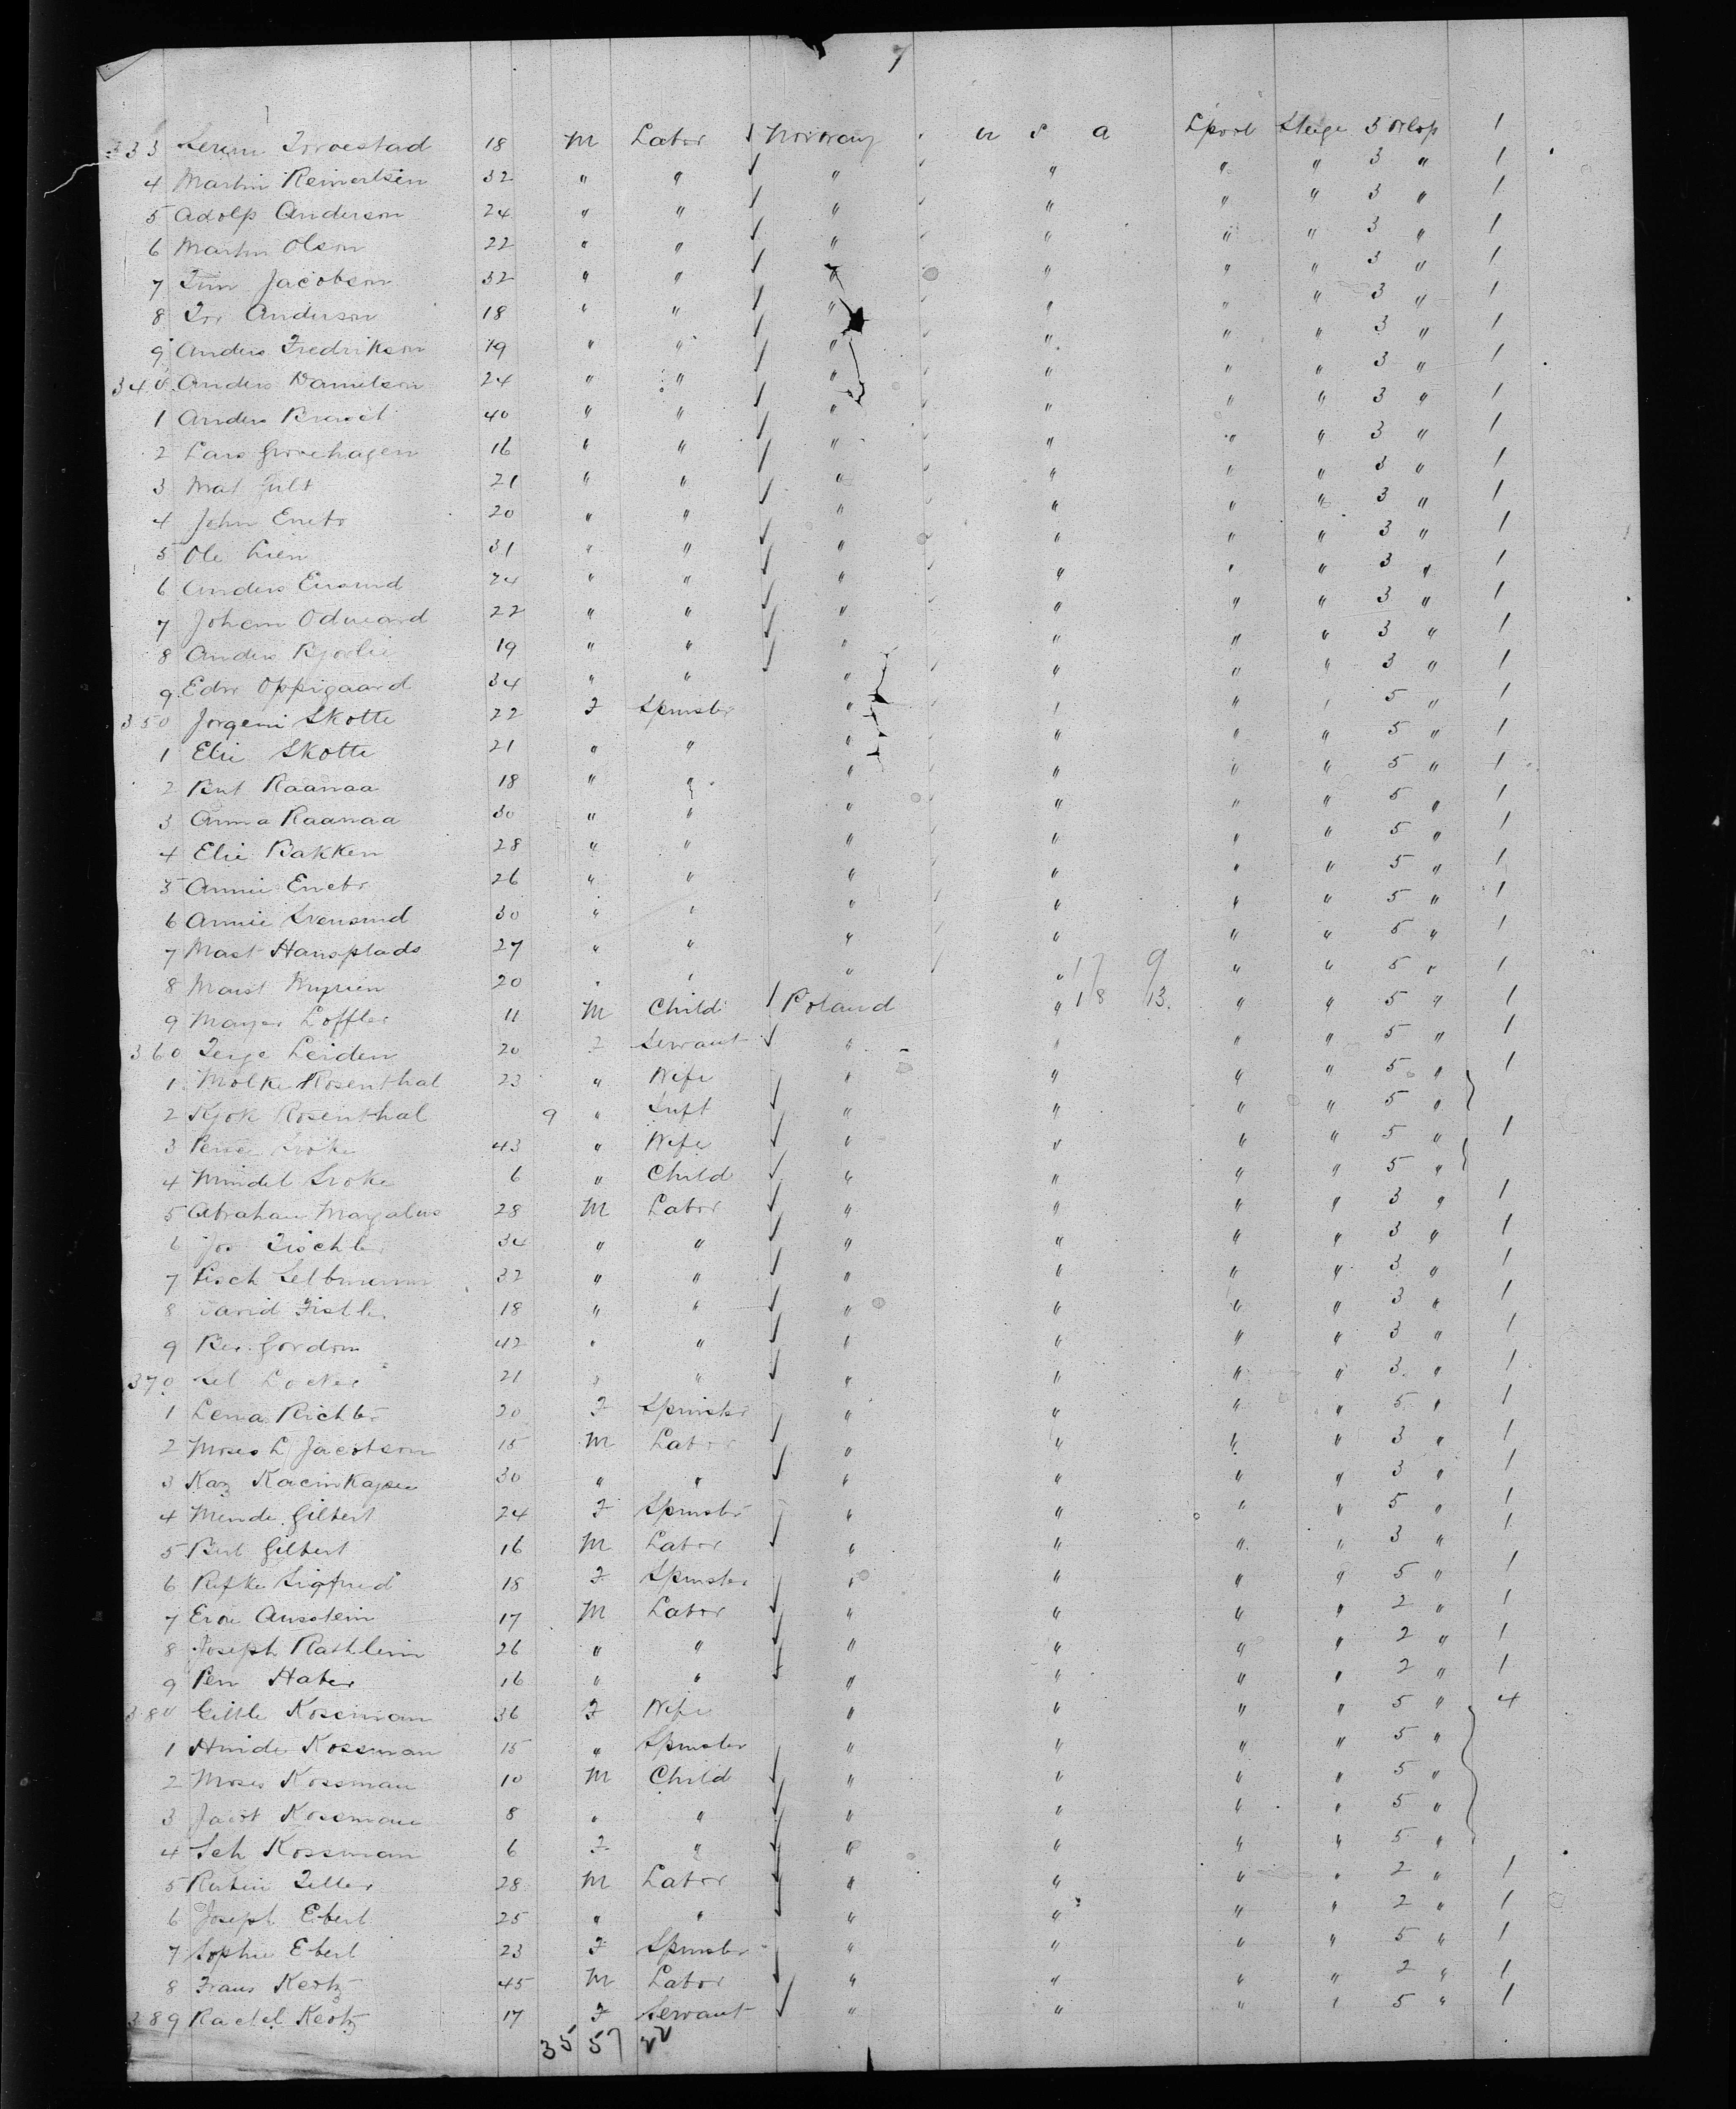 7
333 Torvestad 18 M Labor Norway U S A Lpool Steige 3 Orlop 1
4 Martin Reinertsen 32 " " " " " " 3 " 1
5 Adolf Anderson 24 " " " " " " 3 " 1
6 Martin Olson 22 " " " " " " 3 " 1
7 Jacobson 32 " " " " " " 3 " 1
8 Tor Anderson 18 " " " " " " 3 " 1
9 Anders Fredrikson 19 " " " " " " 3 " 1
340 Anders Danielson 24 " " " " " " 3 " 1
1 Anders 40 " " " " " " 3 " 1
2 Lars Grovehagen 16 " " " " " " 3 " 1
3 Mat Gult 21 " " " " " " 3 " 1
4 John 20 " " " " " " 3 " 1
5 Ole Lien 31 " " " " " " 3 " 1
6 Anders 24 " " " " " " 3 " 1
7 Johan 22 " " " " " " 3 " 1
8 Anders 19 " " " " " " 3 " 1
9 Edw Oppigaard 34 " " " " " " 3 " 1
350 Jorgeni Skotte 22 F Spinster " " " " 5 " 1
1 Elie Skotte 21 " " " " " " 5 " 1
2 Raanaa 18 " " " " " " 5 " 1
3 Anna Raanaa 30 " " " " " " 5 " 1
4 Elie Bakken 28 " " " " " " 5 " 1
5 Annie 26 " " " " " " 5 " 1
6 Annie 30 " " " " " " 5 " 1
7 Hansplads 27 " " " " " " 5 " 1
17 9
8 20 " " " " " " 5 " 1
18 13.
9 Mayer Loffler 11 M Child Poland " " " 5 " 1
360 Leiden 20 F Servant " " " " 5 " 1
1 Molke Rosenthal 23 " Wife " " " " 5 " 1
2 Rosenthal 9 " Inft " " " " 5 "
3 43 " Wife " " " " 5 " 1
4 Mindel Sroke 6 " Child " " " " 5 "
5 Abraham Magalus 28 M Labor " " " " 3 " 1
6 Jos Tischler 34 " " " " " " 3 " 1
7 32 " " " " " " 3 " 1
8 David 18 " " " " " " 3 " 1
9 Ber Gordon 42 " " " " " " 3 " 1
370 21 " " " " " " 3 " 1
1 Lena Richter 20 F Spinster " " " " 5 " 1
2 Moses L Jacobson 15 M Labor " " " " 3 " 1
3 Kaz 30 " " " " " " 3 " 1
4 Minde Gilbert 24 F Spinster " " " " 5 " 1
5 Gilbert 16 M Labor " " " " 3 " 1
6 Rifke Sigfried 18 F Spinster " " " " 5 " 1
7 17 M Labor " " " " 2 " 1
8 Joseph 26 " " " " " " 2 " 1
9 Haber 16 " " " " " " 2 " 1
380 Gittle Kossman 36 F Wife " " " " 5 " 4
1 Kossman 15 " Spinster " " " " 5 "
2 Moses Kossman 10 M Child " " " " 5 "
3 Jacob Kossman 8 " " " " " " 5 "
4 Kossman 6 F " " " " " 5 "
5 Rubin Teller 28 M Labor " " " " 2 " 1
6 Joseph Ebert 25 " " " " " " 2 " 1
7 Sophie Ebert 23 F Spinster " " " " 5 " 1
8 Frans Kertz 45 M Labor " " " " 2 " 1
389 Rachel Kertz 17 F Servant " " " " 5 " 1
35 57 22